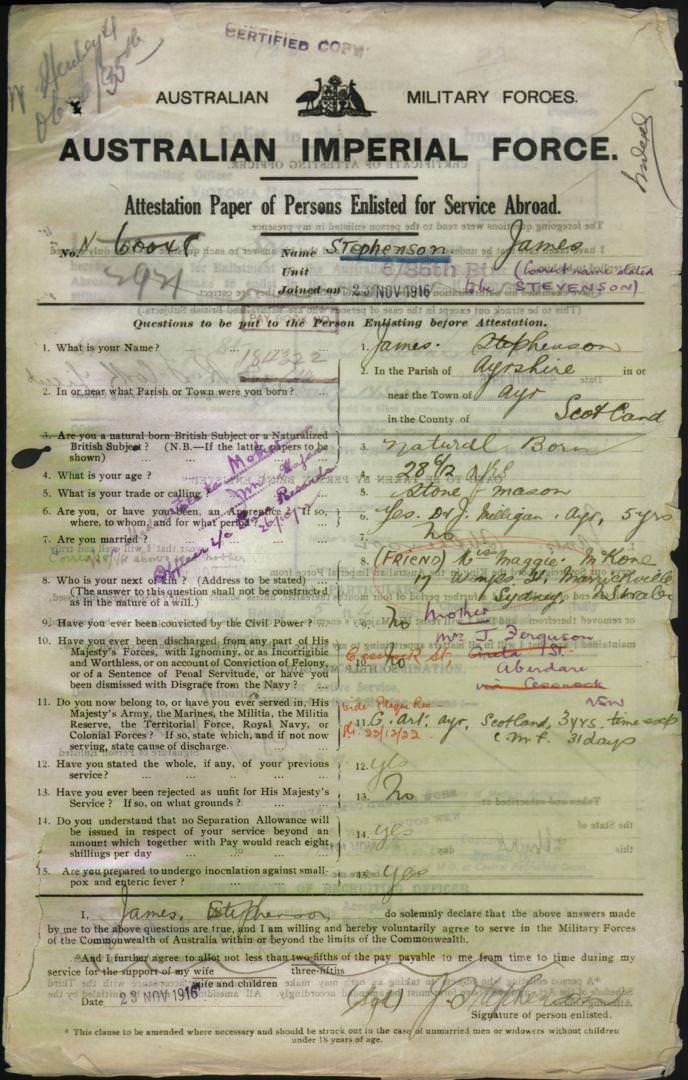 CERTIFIED COPY
AUSTRALIAN MILITARY FORCES.
AUSTRALIAN IMPERIAL FORCE.
Attestation Paper of Persons Enlisted for Service Abroad.
No. N
3921
Name Stephenson James
Unit 6/35th Bt
(Correct name stated
to be STEVENSON)
Joined on 23 NOV 1916
Questions to be put to the Person Enlisting before Attestation.
1. What is your Name? ... 1. James. Stephenson
184322
2. In or near what Parish or Town were you born? ... 2. In the Parish of Ayrshire in or
near the Town of Ayr
in the County of Scotland
3. Are you a natural born British Subject or a Naturalized
British Subject? (N.B.—If the latter, papers to be
shown) ... 3. Natural Born
4. What is your age? ... 4. 28 6/12
5. What is your trade or calling ... 5. Stone mason
6. Are you, or have you been, an Apprentice? If so,
where, to whom, and for what period? 6. Yes. J. Milligan. Ayr, 5 yrs
7. Are you married? ... 7. No
8. Who is your next of kin? (Address to be stated)
(The answer to this question shall not be constructed
as in the nature of a will.) 8. (FRIEND) Miss Maggie McKone
St, Marrickville
Sydney,
9. Have you ever been convicted by the Civil Power? .. 9. No
Mother
Mrs J. Ferguson
St.
Aberdare
via Cessnock
NSW
10. Have you ever been discharged from any part of His
Majesty's Forces, with Ignominy, or as Incorrigible
and Worthless, or on account of Conviction of Felony,
or of a Sentence of Penal Servitude, or have you
been dismissed with Disgrace from the Navy? ... 10. No
11. Do you now belong to, or have you ever served in, His
Majesty's Army, the Marines, the Militia, the Militia
Reserve, the Territorial Force, Royal Navy, or
Colonial Forces? If so, state which, and if not now
serving, state cause of discharge. 11. G. art. ayr, Scotland, 3 yrs. time exp
C.M.F. 31 days
22/12/22
12. Have you stated the whole, if any, of your previous
service? ... 12. yes
13. Have you ever been rejected as unfit for His Majesty's
Service? If so, on what grounds? ... 13. No
14. Do you understand that no Separation Allowance will
be issued in respect of your service beyond an
amount which together with Pay would reach eight
shillings per day ... 14. yes
15. Are you prepared to undergo inoculation against small-
pox and enteric fever? ... 15. yes
Officer i/c Base Records
I, James, Stephenson do solemnly declare that the above answers made
by me to the above questions are true, and I am willing and hereby voluntarily agree to serve in the Military Forces
of the Commonwealth of Australia within or beyond the limits of the Commonwealth.
*And I further agree to allot not less than two-fifths of the pay payable to me from time to time during my
three-fifths
service for the support of my wife
wife and children
Date 23 NOV 1916 (Sgd) J. Stephenson
Signature of person enlisted.
* This clause to be amended where necessary and should be struck out in the case of unmarried men or widowers without children
under 18 years of age.